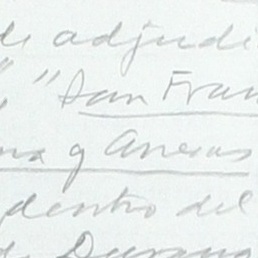 de adjudi
", "San Fran
na y Anexas
dentro del
de Durang